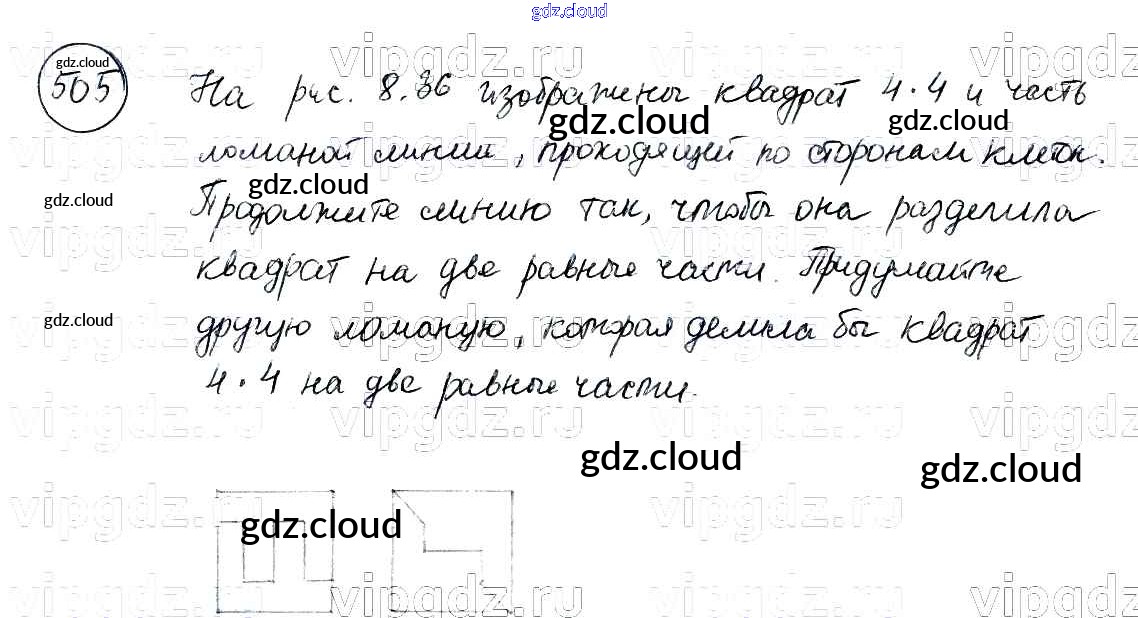 gdz.cloud
505 gdz.cloud
На рис. 8.36 изображены квадрат 4·4 и часть
gdz.cloud gdz.cloud
ломаной линии, проходящей по сторонам клеток.
gdz.cloud gdz.cloud
Продолжите линию так, чтобы она разделила
квадрат на две равные части. Придумайте
gdz.cloud
другую ломаную, которая делила бы квадрат
4·4 на две равные части.
gdz.cloud gdz.cloud
gdz.cloud
vipgdz.ru vipgdz.ru vipgdz.ru vipgdz.ru